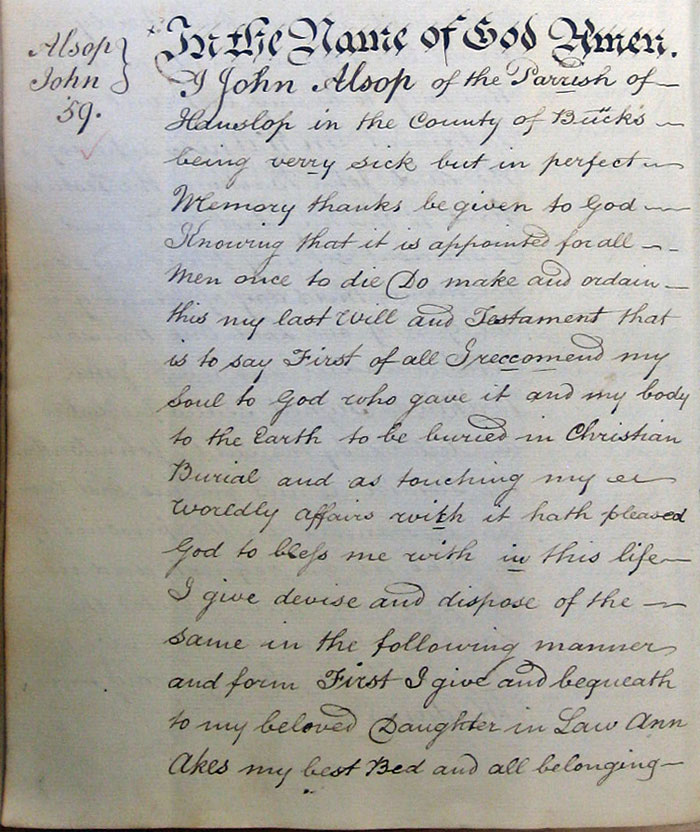 Alsop
John
59.
In the Name of God Amen.
I John Alsop of the Parrish of
Hanslop in the County of Bucks
being verry sick but in perfect
Memory thanks be given to God
Knowing that it is appointed for all
Men once to die Do make and ordain
this my last Will and Testament that
is to say First of all I reccomend my
Soul to God who gave it and my body
to the Earth to be buried in Christian
Burial and as touching my
Worldly affairs with it hath pleased
God to bless me with in this life
I give devise and dispose of the
same in the following manner
and form First I give and bequeath
to my beloved Daughter in Law Ann
Akes my best Bed and all belonging